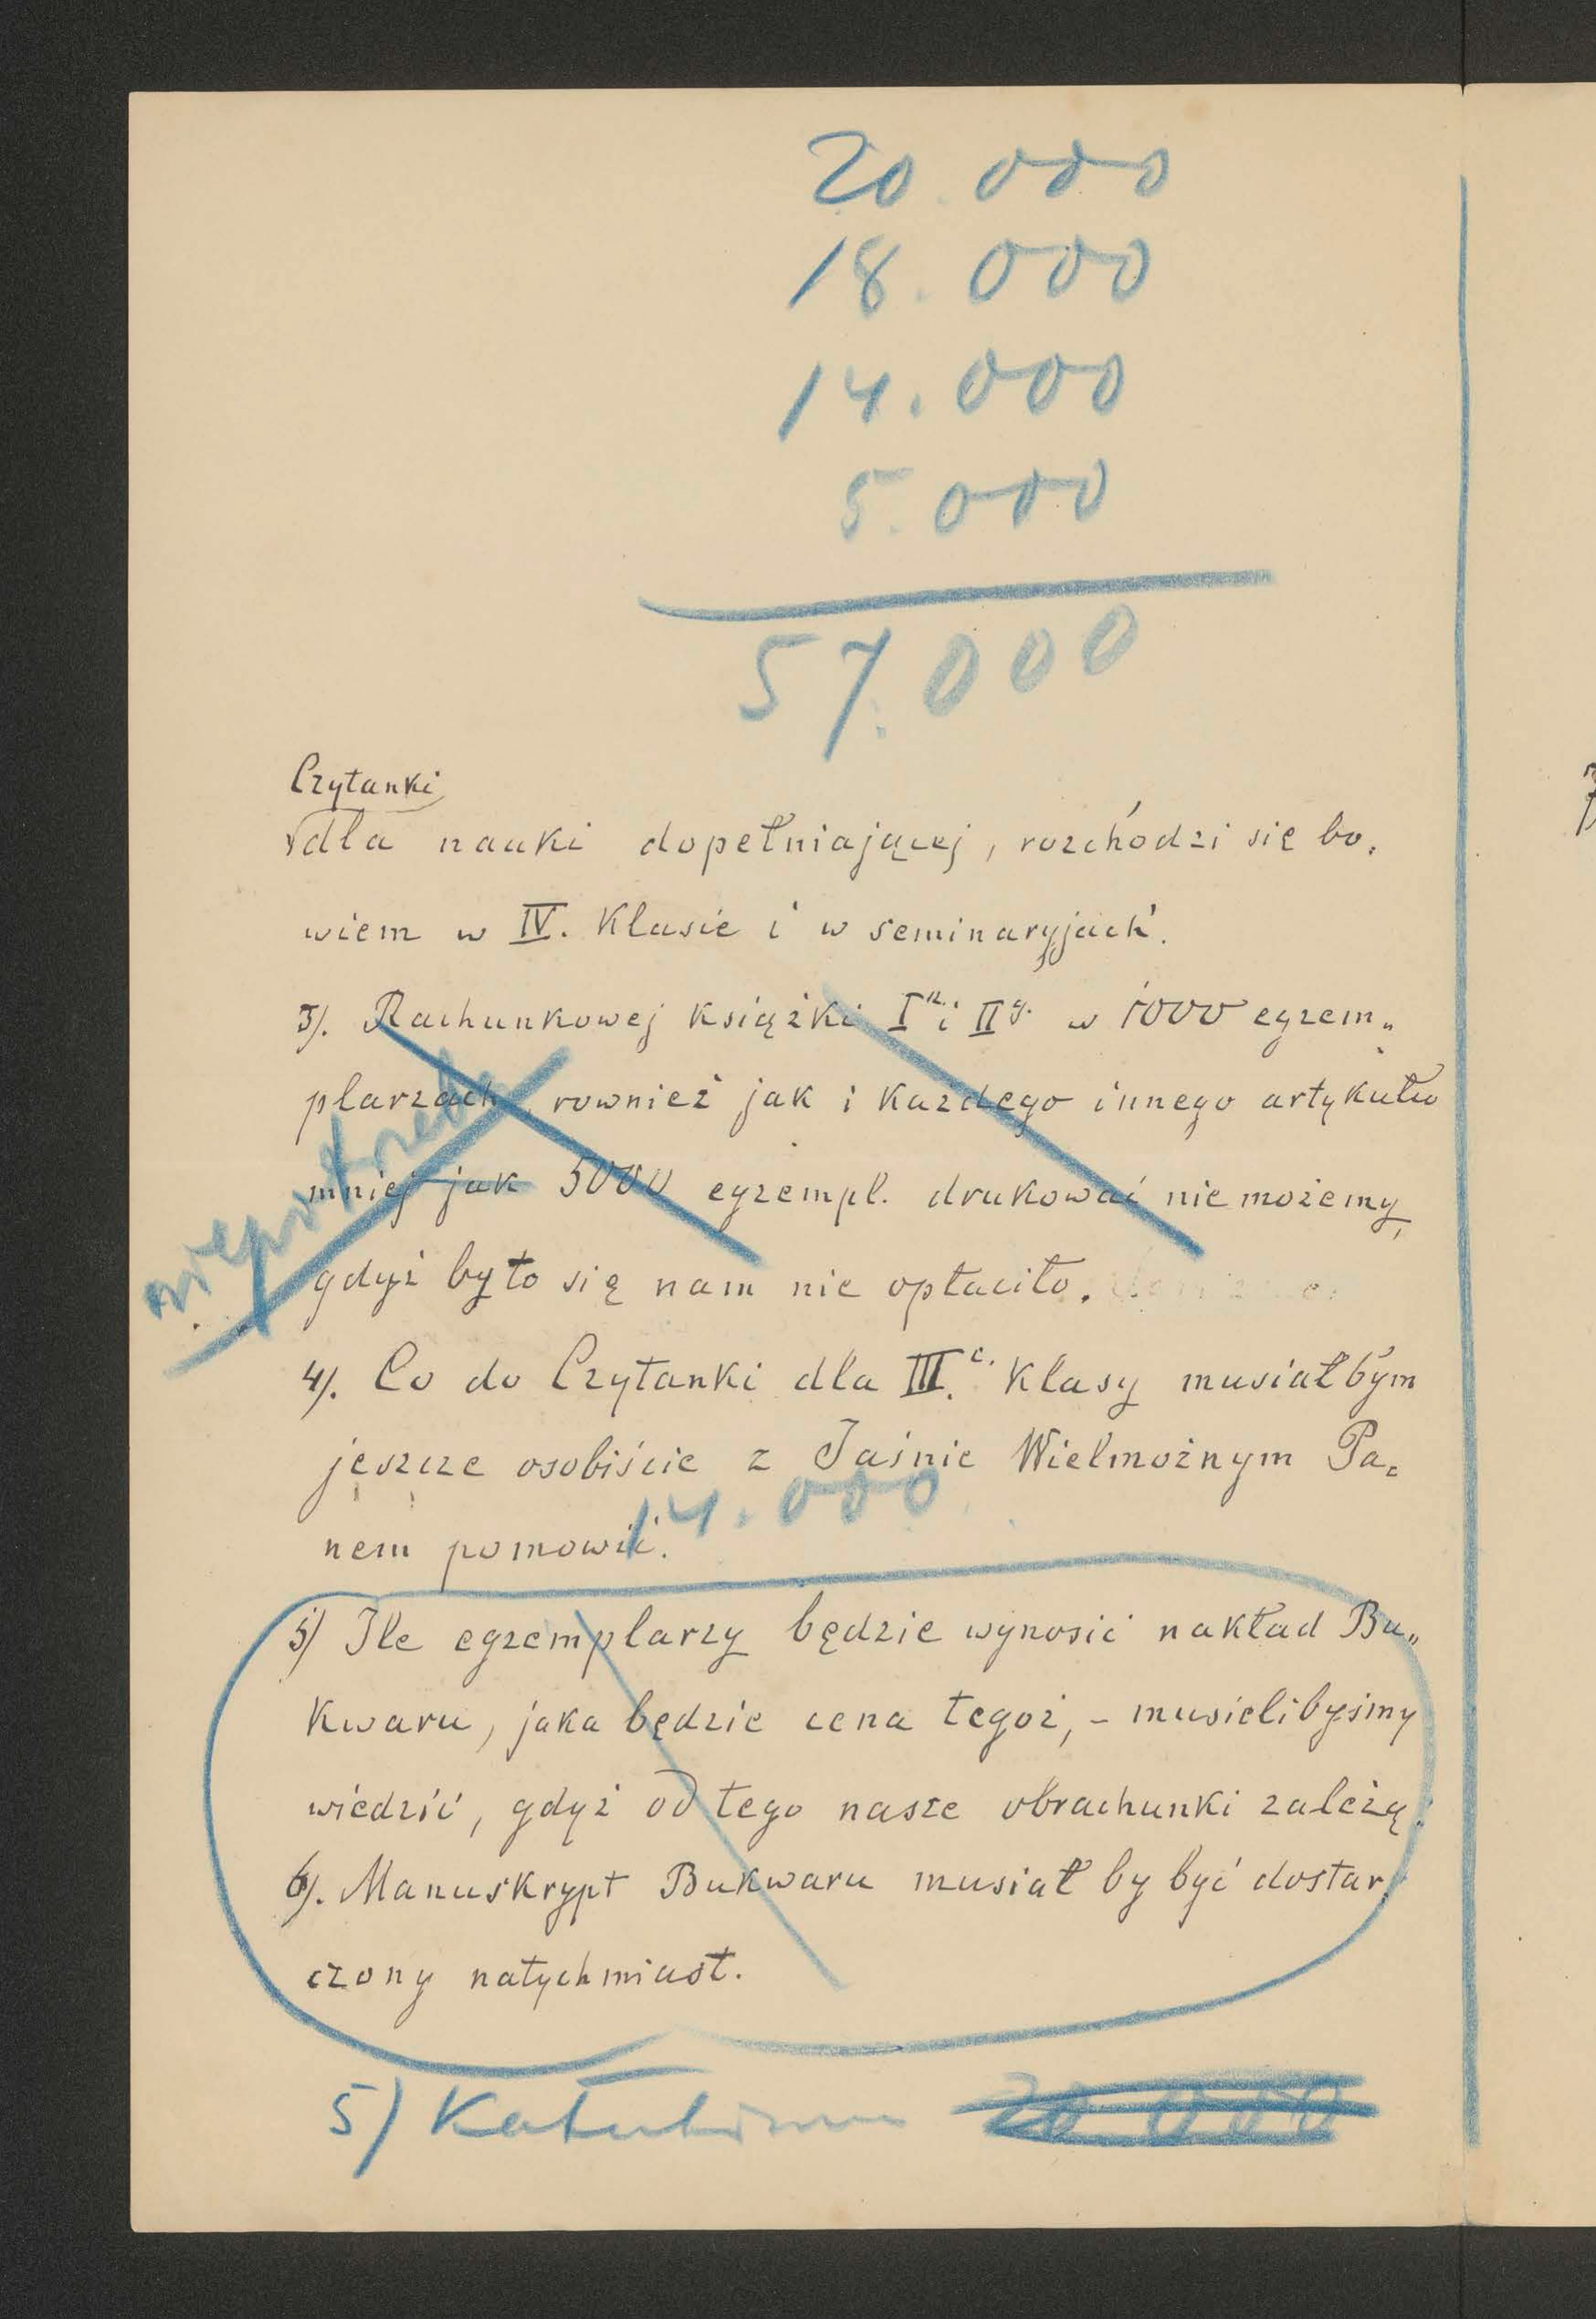 20.000
18.000
14.000
5.000
57.000
Czytanki
dla nauki dopełniającej, rozchodzi się bo„
wiem w IV. Klasie i w seminaryjach.
3). Rachunkowej książki I i II w 1000 egzem„
plarzach, rownież jak i każdego innego artykułu
mniej jak 5000 egzempl. drukować nie możemy,
gdyż by to się nam nie opłaciło.
4). Co do Czytanki dla III. Klasy musiał bym
jeszcze osobiście z Jaśnie Wielmożnym Pa„
14.000
nem pomowić.
5) Ile egzemplarzy będzie wynosić nakład Bu„
kwaru, jaka będzie cena tegoż, – musielibyśmy
wiedzić, gdyż od tego nasze obrachunki zależą.
6). Manuskrypt Bukwaru musiał by być dostar„
czony natychmiast.
5) 20 000